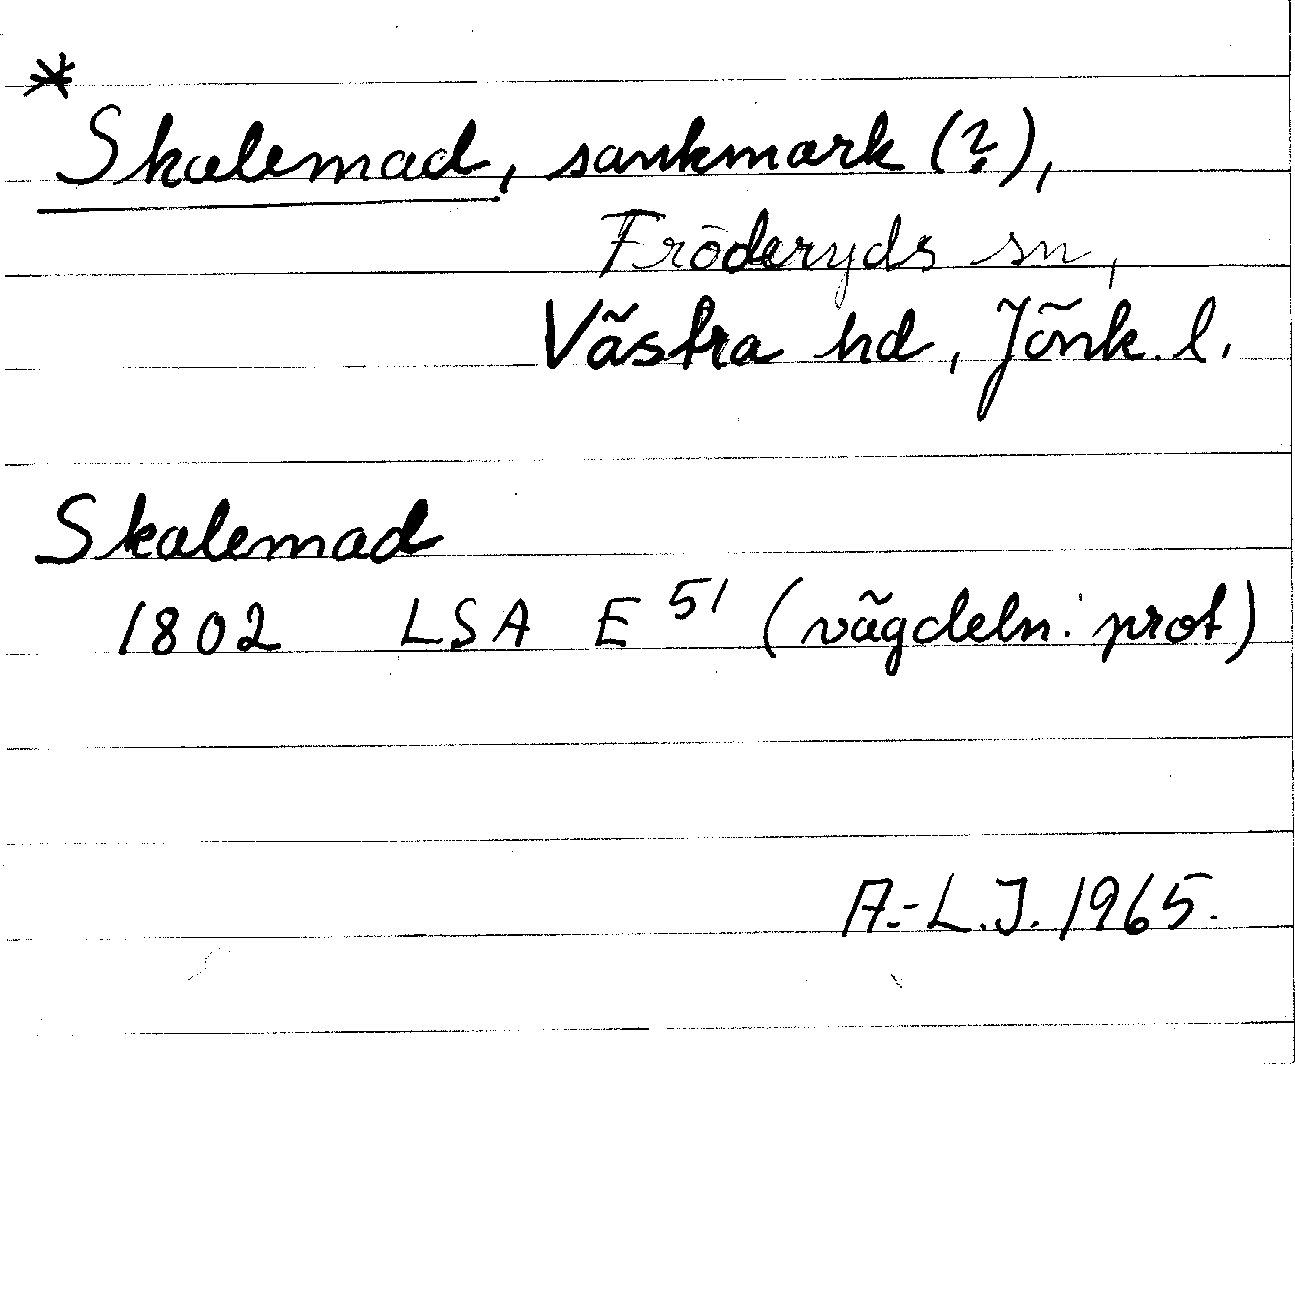 *
Skalemad, sankmark (?),
Fröderyds sn,
Västra hd, Jönk. l.
Skalemad
1802 LSA E 51 (vägdeln. prot)
A.-L.J. 1965.